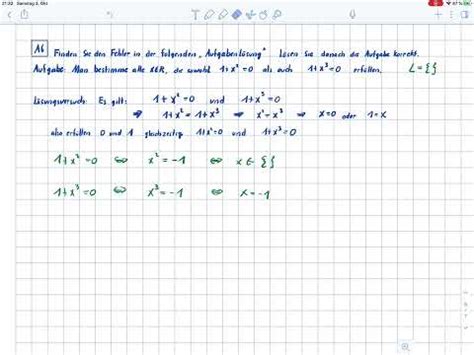 21:32 Samstag 5. Okt. 47 %
A6 Finden Sie den Fehler in der folgenden „Aufgabenlösung“. Lösen Sie danach die Aufgabe korrekt.
Aufgabe: Man bestimme alle x∈R, die sowohl 1+x²=0 als auch 1+x³=0 erfüllen. L={}
Lösungsversuch: Es gilt: 1+x²=0 und 1+x³=0
⇒ 1+x²=1+x³ ⇒ x²=x³ ⇒ x=0 oder 1=x
also erfüllen 0 und 1 gleichzeitig 1+x²=0 und 1+x³=0
1+x²=0 ⇔ x²=-1 ⇔ x∈{}
1+x³=0 ⇔ x³=-1 ⇔ x=-1